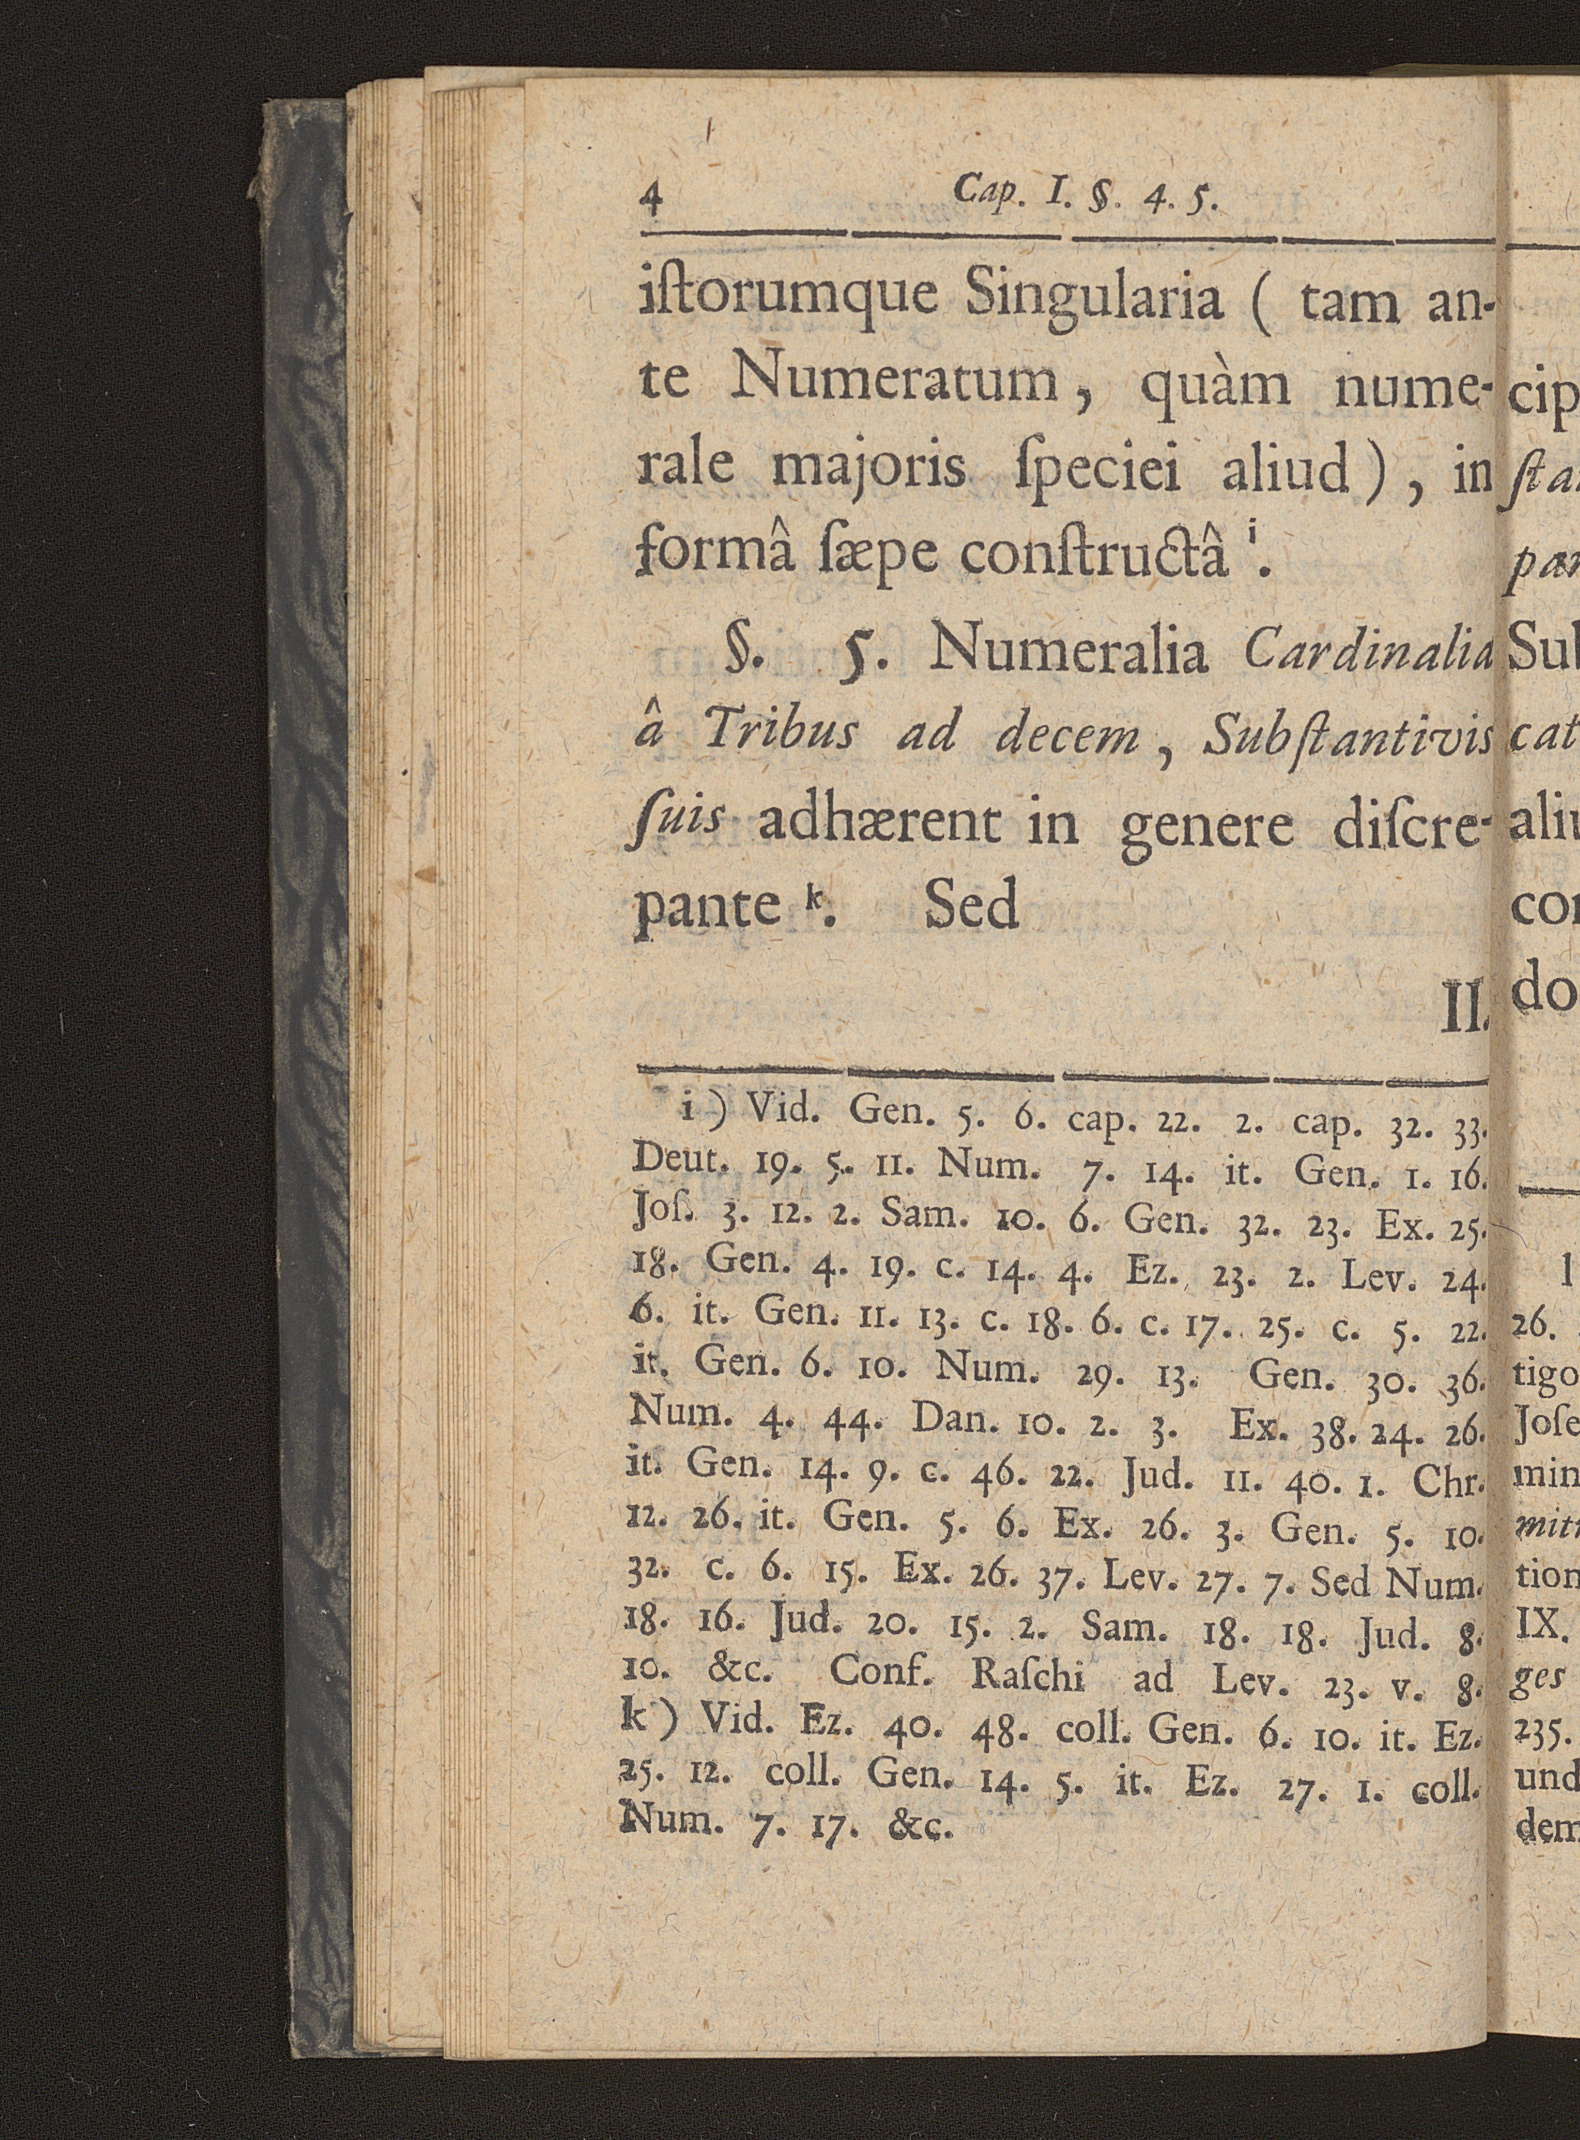 4 Cap. I. §. 4. 5.
iſtorumque Singularia ( tam an-
te Numeratum, quàm nume-
rale majoris ſpeciei aliud ), in
formâ ſæpe conſtructâ i.
§. 5. Numeralia Cardinalia
â Tribus ad decem, Subſtantivis
ſuis adhærent in genere diſcre-
pante k. Sed
II.
i ) Vid. Gen. 5. 6. cap. 22. 2. cap. 32. 33.
Deut. 19. 5. 11. Num. 7. 14. it. Gen. 1. 16.
Joſ. 3. 12. 2. Sam. 10. 6. Gen. 32. 23. Ex. 25.
18. Gen. 4. 19. c. 14. 4. Ez. 23. 2. Lev. 24.
6. it. Gen. 11. 13. c. 18. 6. c. 17. 25. c. 5. 22.
it. Gen. 6. 10. Num. 29. 13. Gen. 30. 36.
Num. 4. 44. Dan. 10. 2. 3. Ex. 38. 24. 26.
it. Gen. 14. 9. c. 46. 22. Jud. 11. 40. 1. Chr.
12. 26. it. Gen. 5. 6. Ex. 26. 3. Gen. 5. 10.
32. c. 6. 15. Ex. 26. 37. Lev. 27. 7. Sed Num.
18. 16. Jud. 20. 15. 2. Sam. 18. 18. Jud. 8.
10. &c. Conf. Raſchi ad Lev. 23. v. 8.
k ) Vid. Ez. 40. 48. coll. Gen. 6. 10. it. Ez.
25. 12. coll. Gen. 14. 5. it. Ez. 27. 1. coll.
Num. 7. 17. &c.
cip
ſta
pa
Sub
cat
aliu
co
do
26.
tigo
Joſe
min
mitt
tion
IX.
ges
235.
und
dem